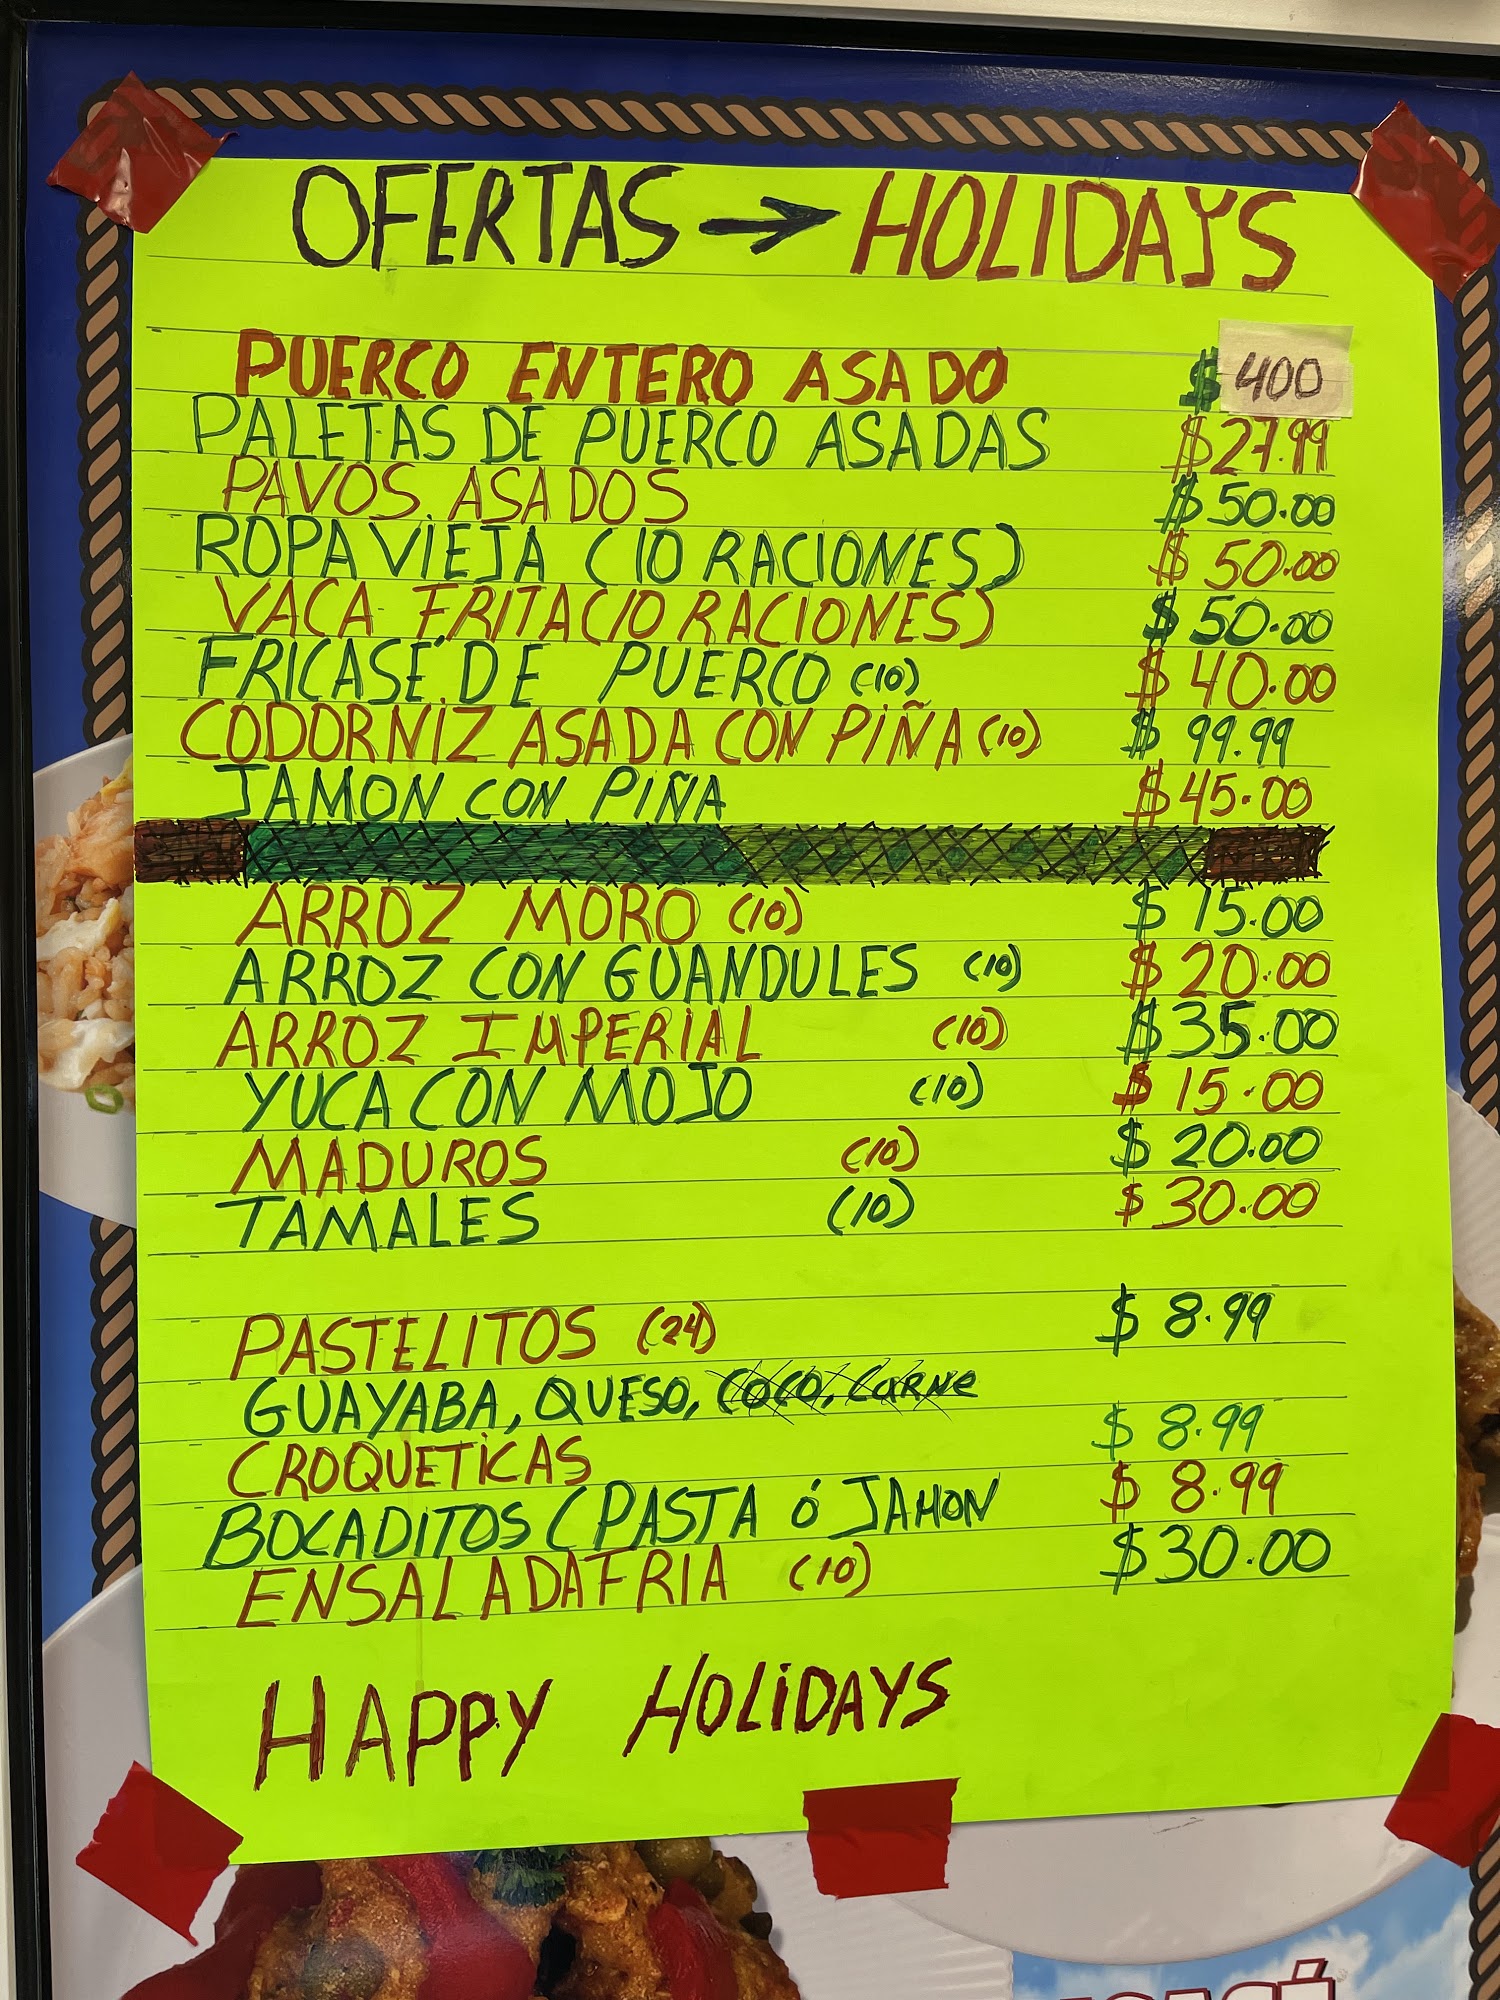 OFERTAS → HOLIDAYS
PUERCO ENTERO ASADO $ 400
PALETAS DE PUERCO ASADAS $27.99
PAVOS ASADOS $50.00
ROPA VIEJA (10 RACIONES) $ 50.00
VACA FRITA (10 RACIONES) $ 50.00
FRICASÉ DE PUERCO (10) $ 40.00
CODORNIZ ASADA CON PIÑA (10) $ 99.99
JAMON CON PIÑA $45.00
ARROZ MORO (10) $ 15.00
ARROZ CON GUANDULES (10) $ 20.00
ARROZ IMPERIAL (10) $35.00
YUCA CON MOJO (10) $ 15.00
MADUROS (10) $ 20.00
TAMALES (10) $ 30.00
PASTELITOS (24) $ 8.99
GUAYABA, QUESO, COCO, CARNE
CROQUETICAS $ 8.99
BOCADITOS (PASTA ó JAMON $ 8.99
ENSALADA FRIA (10) $30.00
HAPPY HOLIDAYS